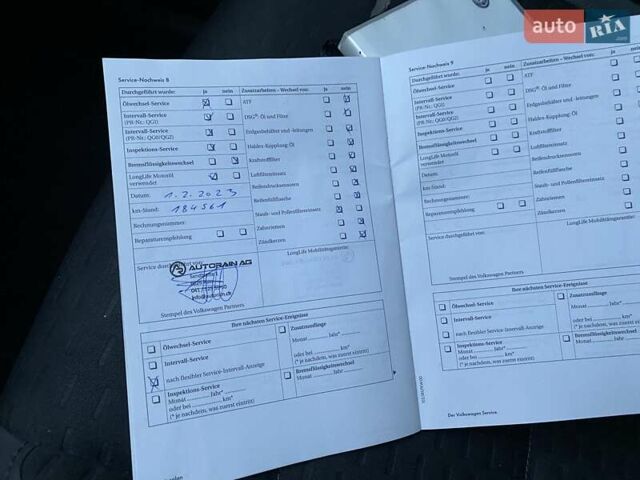 auto RIA .com
Service-Nachweis 8
Durchgeführt wurde: ja nein
Ölwechsel-Service
Intervall-Service
(PR-Nr.: QG1)
Intervall-Service
(PR-Nr.: QG0/QG2)
Inspektions-Service
Bremsflüssigkeitswechsel
LongLife Motoröl
verwendet
Datum: 1.2.2023
km-Stand: 184561
Rechnungsnummer:
Reparaturempfehlung
Zusatzarbeiten - Wechsel von: ja nein
ATF
DSG®-Öl und Filter
Erdgasbehälter und -leitungen
Haldex-Kupplung Öl
Kraftstofffilter
Luftfiltereinsatz
Reifendruckmessen
Reifenfüllflasche
Staub- und Pollenfiltereinsatz
Zahnriemen
Zündkerzen
Service durchgeführt von:
AUTORAIN AG
Stempel des Volkswagen Partners
LongLife Mobilitätsgarantie:
Ihre nächsten Service-Ereignisse
Ölwechsel-Service
Intervall-Service
nach flexibler Service-Intervall-Anzeige
Inspektions-Service
Monat ........ Jahr* ........
oder bei ........ km*
(* je nachdem, was zuerst eintritt)
Zusatzumfänge
Monat ........ Jahr* ........
oder bei ........ km*
(* je nachdem, was zuerst eintritt)
Bremsflüssigkeitswechsel
Monat ........ Jahr ........
Service-Nachweis 9
Durchgeführt wurde: ja nein
Ölwechsel-Service
Intervall-Service
(PR-Nr.: QG1)
Intervall-Service
(PR-Nr.: QG0/QG2)
Inspektions-Service
Bremsflüssigkeitswechsel
LongLife Motoröl
verwendet
Datum:
km-Stand:
Rechnungsnummer:
Reparaturempfehlung
Zusatzarbeiten - Wechsel von:
ATF
DSG®-Öl und Filter
Erdgasbehälter und -leitungen
Haldex-Kupplung Öl
Kraftstofffilter
Luftfiltereinsatz
Reifendruckmessen
Reifenfüllflasche
Staub- und Pollenfiltereinsatz
Zahnriemen
Zündkerzen
Service durchgeführt von:
LongLife Mobilitätsgarantie
Stempel des Volkswagen Partners
Ihre nächsten Service-Ereignisse
Ölwechsel-Service
Intervall-Service
nach flexibler Service-Intervall-Anzeige
Inspektions-Service
Monat ........ Jahr* ........
oder bei ........ km*
(* je nachdem, was zuerst eintritt)
Zusatzumfänge
Monat ........
oder bei ........
(* je nachdem, was
Bremsflüssigkeitswechsel
Monat ........ Jahr
Der Volkswagen Service.